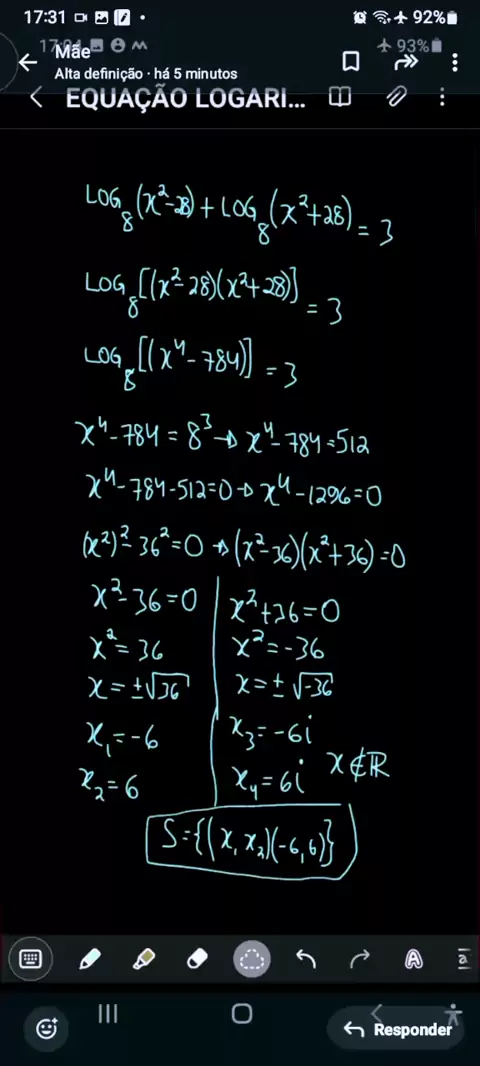 17:31 92%
17:04 93%
Mãe
Alta definição · há 5 minutos
EQUAÇÃO LOGARI...
LOG₈(x²-28) + LOG₈(x²+28) = 3
LOG₈[(x²-28)(x²+28)] = 3
LOG₈[(x⁴-784)] = 3
x⁴-784 = 8³ → x⁴-784=512
x⁴-784-512=0 → x⁴-1296=0
(x²)²-36²=0 → (x²-36)(x²+36)=0
x²-36=0
x²=36
x=±√36
x₁=-6
x₂=6
x²+36=0
x²=-36
x=±√-36
x₃=-6i
x₄=6i x∉ℝ
S={(x, x₂)(-6,6)}
Responder